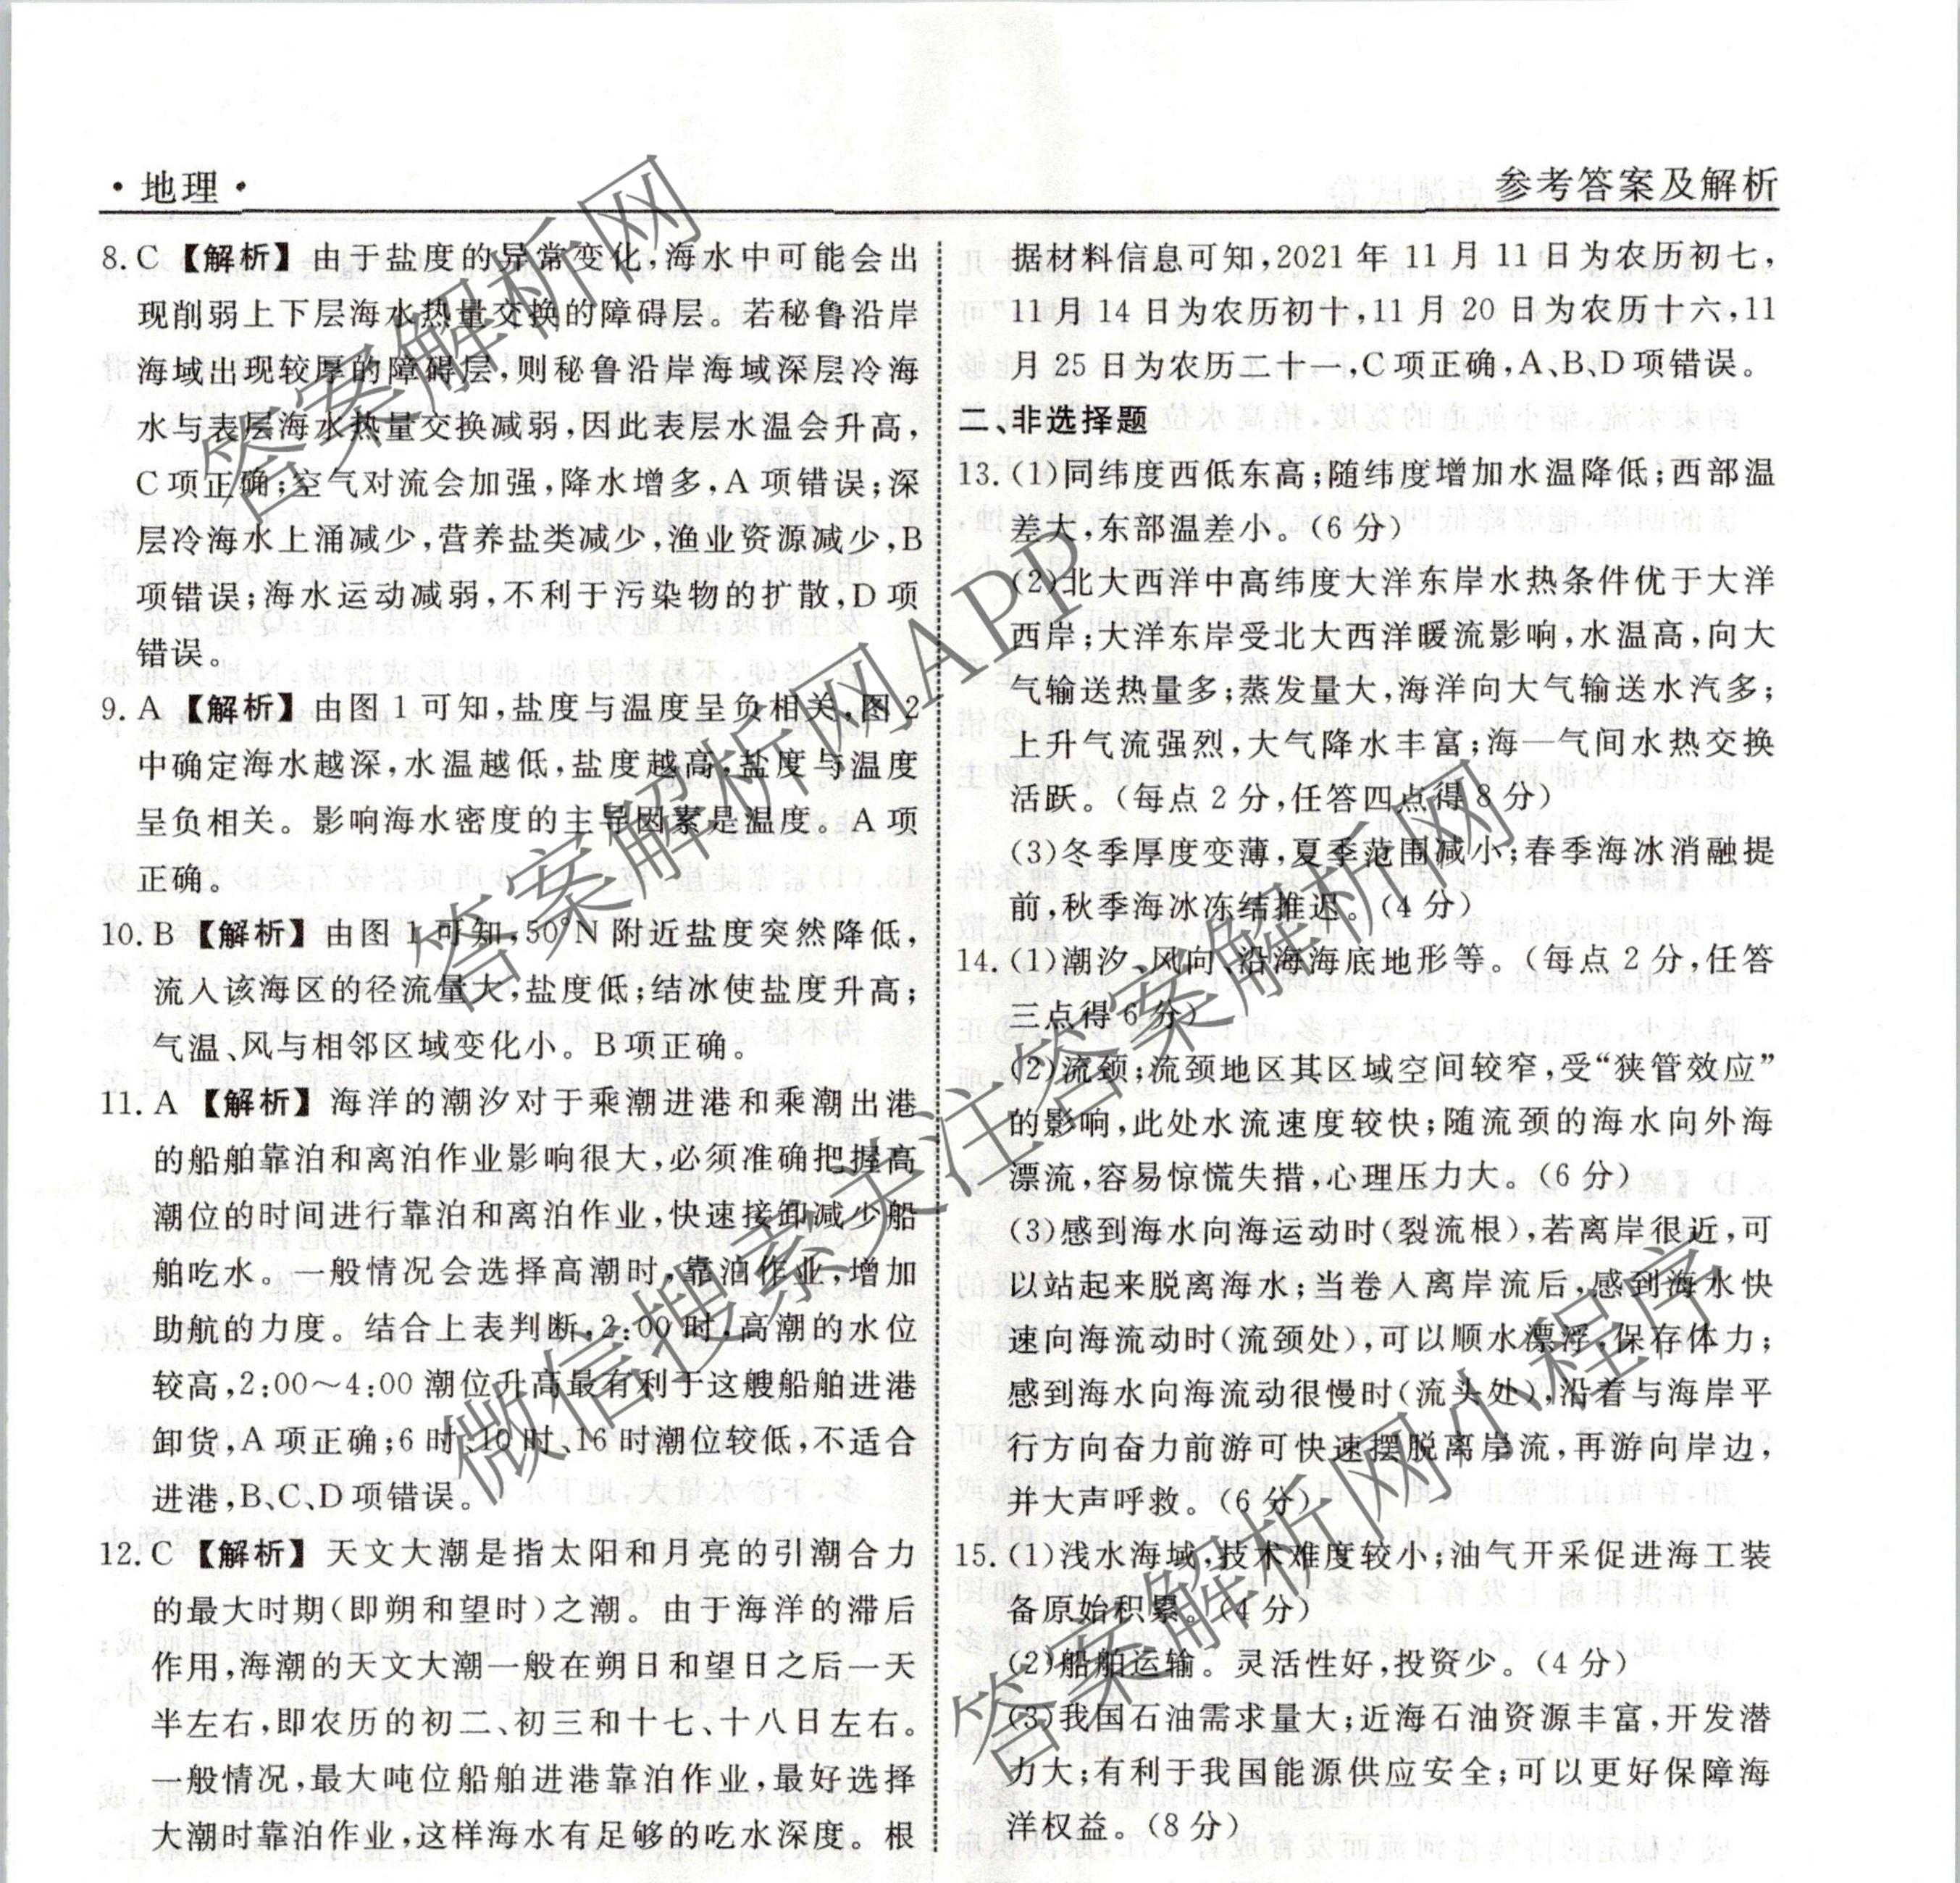 ·地理·
参考答案及解析
8. C【解析】由于盐度的异常变化,海水中可能会出
现削弱上下层海水热量交换的障碍层。若秘鲁沿岸
海域出现较厚的障碍层,则秘鲁沿岸海域深层冷海
水与表层海水热量交换减弱,因此表层水温会升高,
C项正确;空气对流会加强,降水增多,A项错误;深
层冷海水上涌减少,营养盐类减少,渔业资源减少,B
项错误;海水运动减弱,不利于污染物的扩散,D项
错误。
9. A【解析】由图1可知,盐度与温度呈负相关,图2
中确定海水越深,水温越低,盐度越高,盐度与温度
呈负相关。影响海水密度的主导因素是温度。A项
正确。
10. B【解析】由图1可知,50°N附近盐度突然降低,
流入该海区的径流量大,盐度低;结冰使盐度升高;
气温、风与相邻区域变化小。B项正确。
11. A【解析】海洋的潮汐对于乘潮进港和乘潮出港
的船舶靠泊和离泊作业影响很大,必须准确把握高
潮位的时间进行靠泊和离泊作业,快速接卸减少船
舶吃水。一般情况会选择高潮时,靠泊作业,增加
助航的力度。结合上表判断,2:00时,高潮的水位
较高,2:00~4:00潮位升高最有利于这艘船舶进港
卸货,A项正确;6时、10时、16时潮位较低,不适合
进港,B、C、D项错误。
12. C【解析】天文大潮是指太阳和月亮的引潮合力
的最大时期(即朔和望时)之潮。由于海洋的滞后
作用,海潮的天文大潮一般在朔日和望日之后一天
半左右,即农历的初二、初三和十七、十八日左右。
一般情况,最大吨位船舶进港靠泊作业,最好选择
大潮时靠泊作业,这样海水有足够的吃水深度。根
据材料信息可知,2021年11月11日为农历初七,
11月14日为农历初十,11月20日为农历十六,11
月25日为农历二十一,C项正确,A、B、D项错误。
二、非选择题
13. (1)同纬度西低东高;随纬度增加水温降低;西部温
差大,东部温差小。(6分)
(2)北大西洋中高纬度大洋东岸水热条件优于大洋
西岸;大洋东岸受北大西洋暖流影响,水温高,向大
气输送热量多;蒸发量大,海洋向大气输送水汽多;
上升气流强烈,大气降水丰富;海—气间水热交换
活跃。(每点2分,任答四点得8分)
(3)冬季厚度变薄,夏季范围减小;春季海冰消融提
前,秋季海冰冻结推迟。(4分)
14. (1)潮汐、风向、沿海海底地形等。(每点2分,任答
三点得6分)
(2)流颈;流颈地区其区域空间较窄,受“狭管效应”
的影响,此处水流速度较快;随流颈的海水向外海
漂流,容易惊慌失措,心理压力大。(6分)
(3)感到海水向海运动时(裂流根),若离岸很近,可
以站起来脱离海水;当卷人离岸流后,感到海水快
速向海流动时(流颈处),可以顺水漂浮,保存体力;
感到海水向海流动很慢时(流头处),沿着与海岸平
行方向奋力前游可快速摆脱离岸流,再游向岸边,
并大声呼救。(6分)
15. (1)浅水海域,技术难度较小;油气开采促进海工装
备原始积累。(4分)
(2)船舶运输。灵活性好,投资少。(4分)
(3)我国石油需求量大;近海石油资源丰富,开发潜
力大;有利于我国能源供应安全;可以更好保障海
洋权益。(8分)
答案解析网
答案解析网APP
微信搜索关注答案解析网
答案解析网小程序